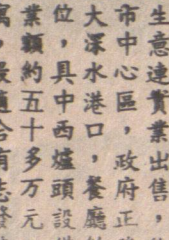 生意連實業出售，
市中心區，政府正
大深水港口，餐廳
位，具中西爐頭設
業額約五十多万元
最適合有志